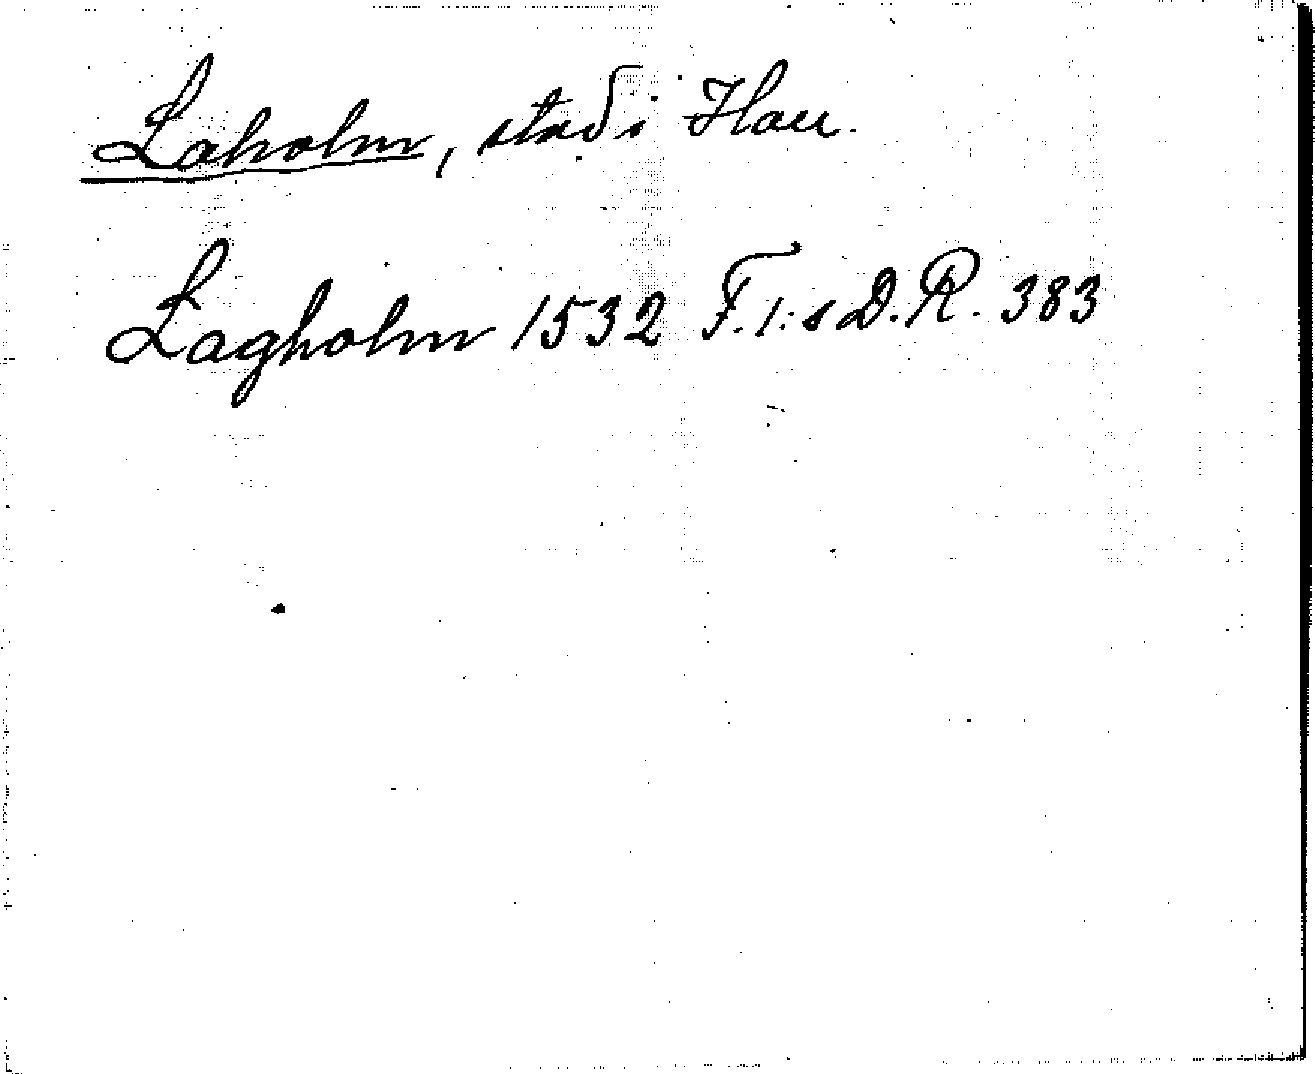 Laholm, stad i Hall.
Lagholm 1532 F. 1:s D.R. 383